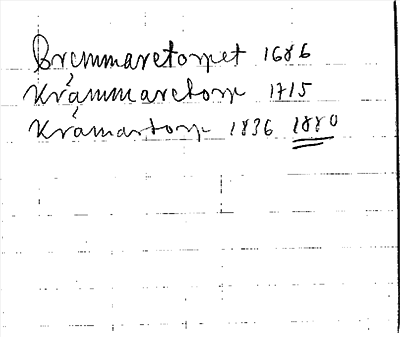 Bremmaretorpet 1686
Krämmaretorp 1715
Kråmartorp 1836 1880